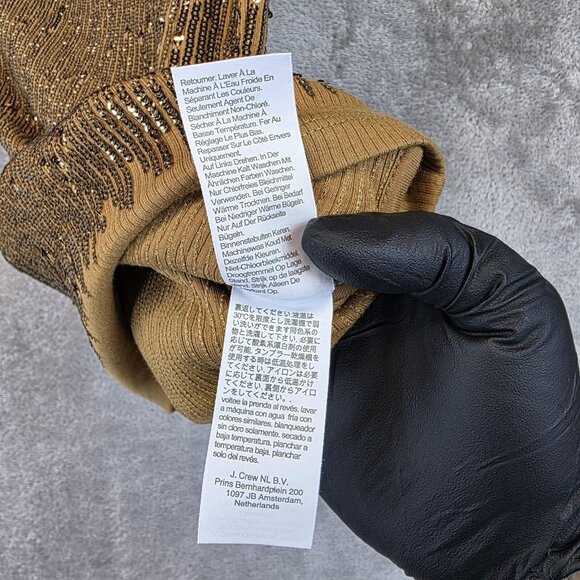 Retourner. Laver À La
Machine À L'Eau Froide En
Séparant Les Couleurs.
Seulement Agent De
Blanchiment Non-Chloré.
Sécher À La Machine À
Basse Température. Fer Au
Réglage Le Plus Bas.
Repasser Sur Le Côté Envers
Uniquement.
Auf Links Drehen. In Der
Maschine Kalt Waschen Mit
Ähnlichen Farben Waschen.
Nur Chlorfreies Bleichmittel
Verwenden. Bei Geringer
Wärme Trocknen. Bei Bedarf
Bei Niedriger Wärme Bügeln.
Nur Auf Der Rückseite
Bügeln.
Binnenstebuiten Keren.
Machinewas Koud Met
Dezelfde Kleuren.
Niet-Chloorbleekmiddel.
Droogtrommel Op Lage
Stand. Strijk op de laagste
Strijk Alleen De
Op.
裏返してください。液温は
30℃を限度とし洗濯機で弱
い洗いができます同色系の
物と洗濯して下さい。必要に
応じて酸素系漂白剤の使用
が可能。タンブラー乾燥機を
使用する時は低温処理をし
てください。アイロンは必要
に応じて裏面から低温かけ
てください。裏側からアイロ
ンをしてください。
voltee la prenda al revés. lavar
a máquina con agua fría con
colores similares. blanqueador
sin cloro solamente. secado a
baja temperatura. planchar a
baja temperatura. planchar
solo del revés.
J. Crew NL B.V.
Prins Bernhardplein 200
1097 JB Amsterdam,
Netherlands